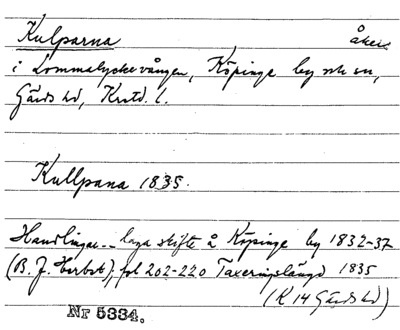 Kulparna åker
i Lommalyckevången, Köpinge by och sn,
Gärds hd, Krstd. l.
Kullpana 1835.
Handlingar -- laga skifte å Köpinge by 1832-37
(B. J. Herbst), fol 202-220 Taxeringslängd 1835
(K 14 Gärds hd)
Nr 5334.